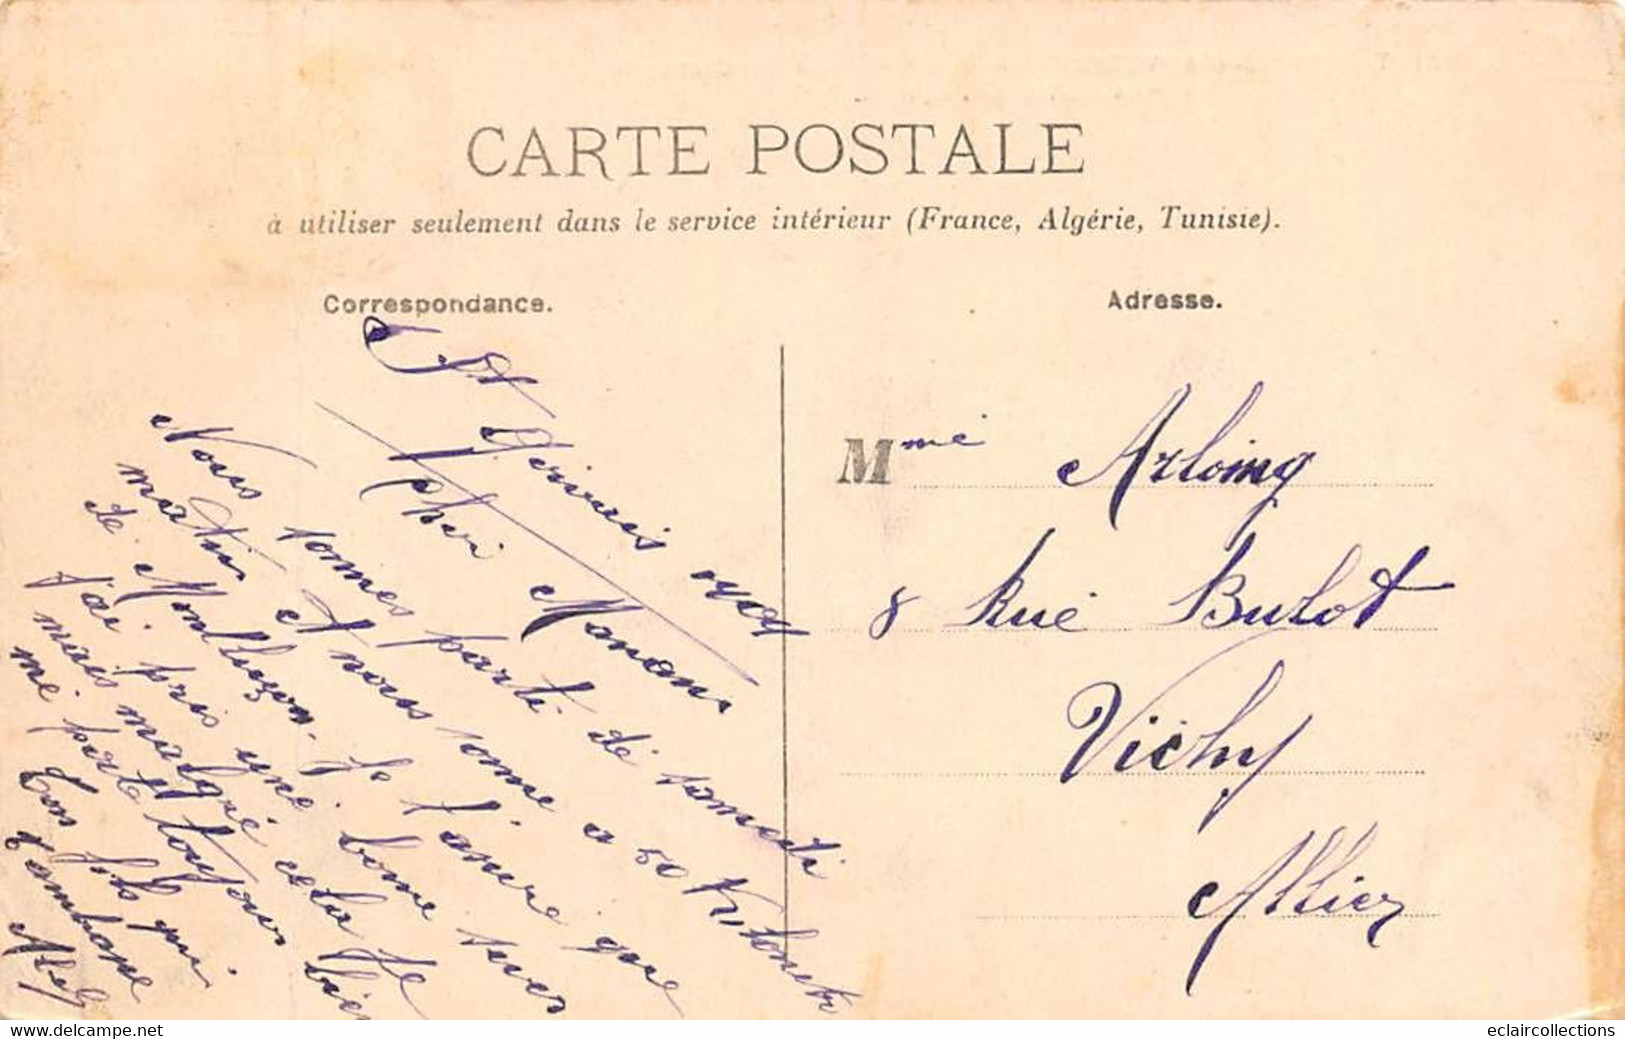 CARTE POSTALE
à utiliser seulement dans le service intérieur (France, Algérie, Tunisie).
Correspondance.
St Gervais
Cher Maman
Nous sommes parti de samedi
matin et nous somme a 50 Kilometr
de Montluçon. Je t'assure que
j'ai pris une bonne suer
mais malgré cela je
me porte toujour bien
Ton fils qui
t'embrase
Abel
Adresse.
Mme Arloing
8 Rue Bulot
Vichy
Allier
www.delcampe.net
eclaircollections